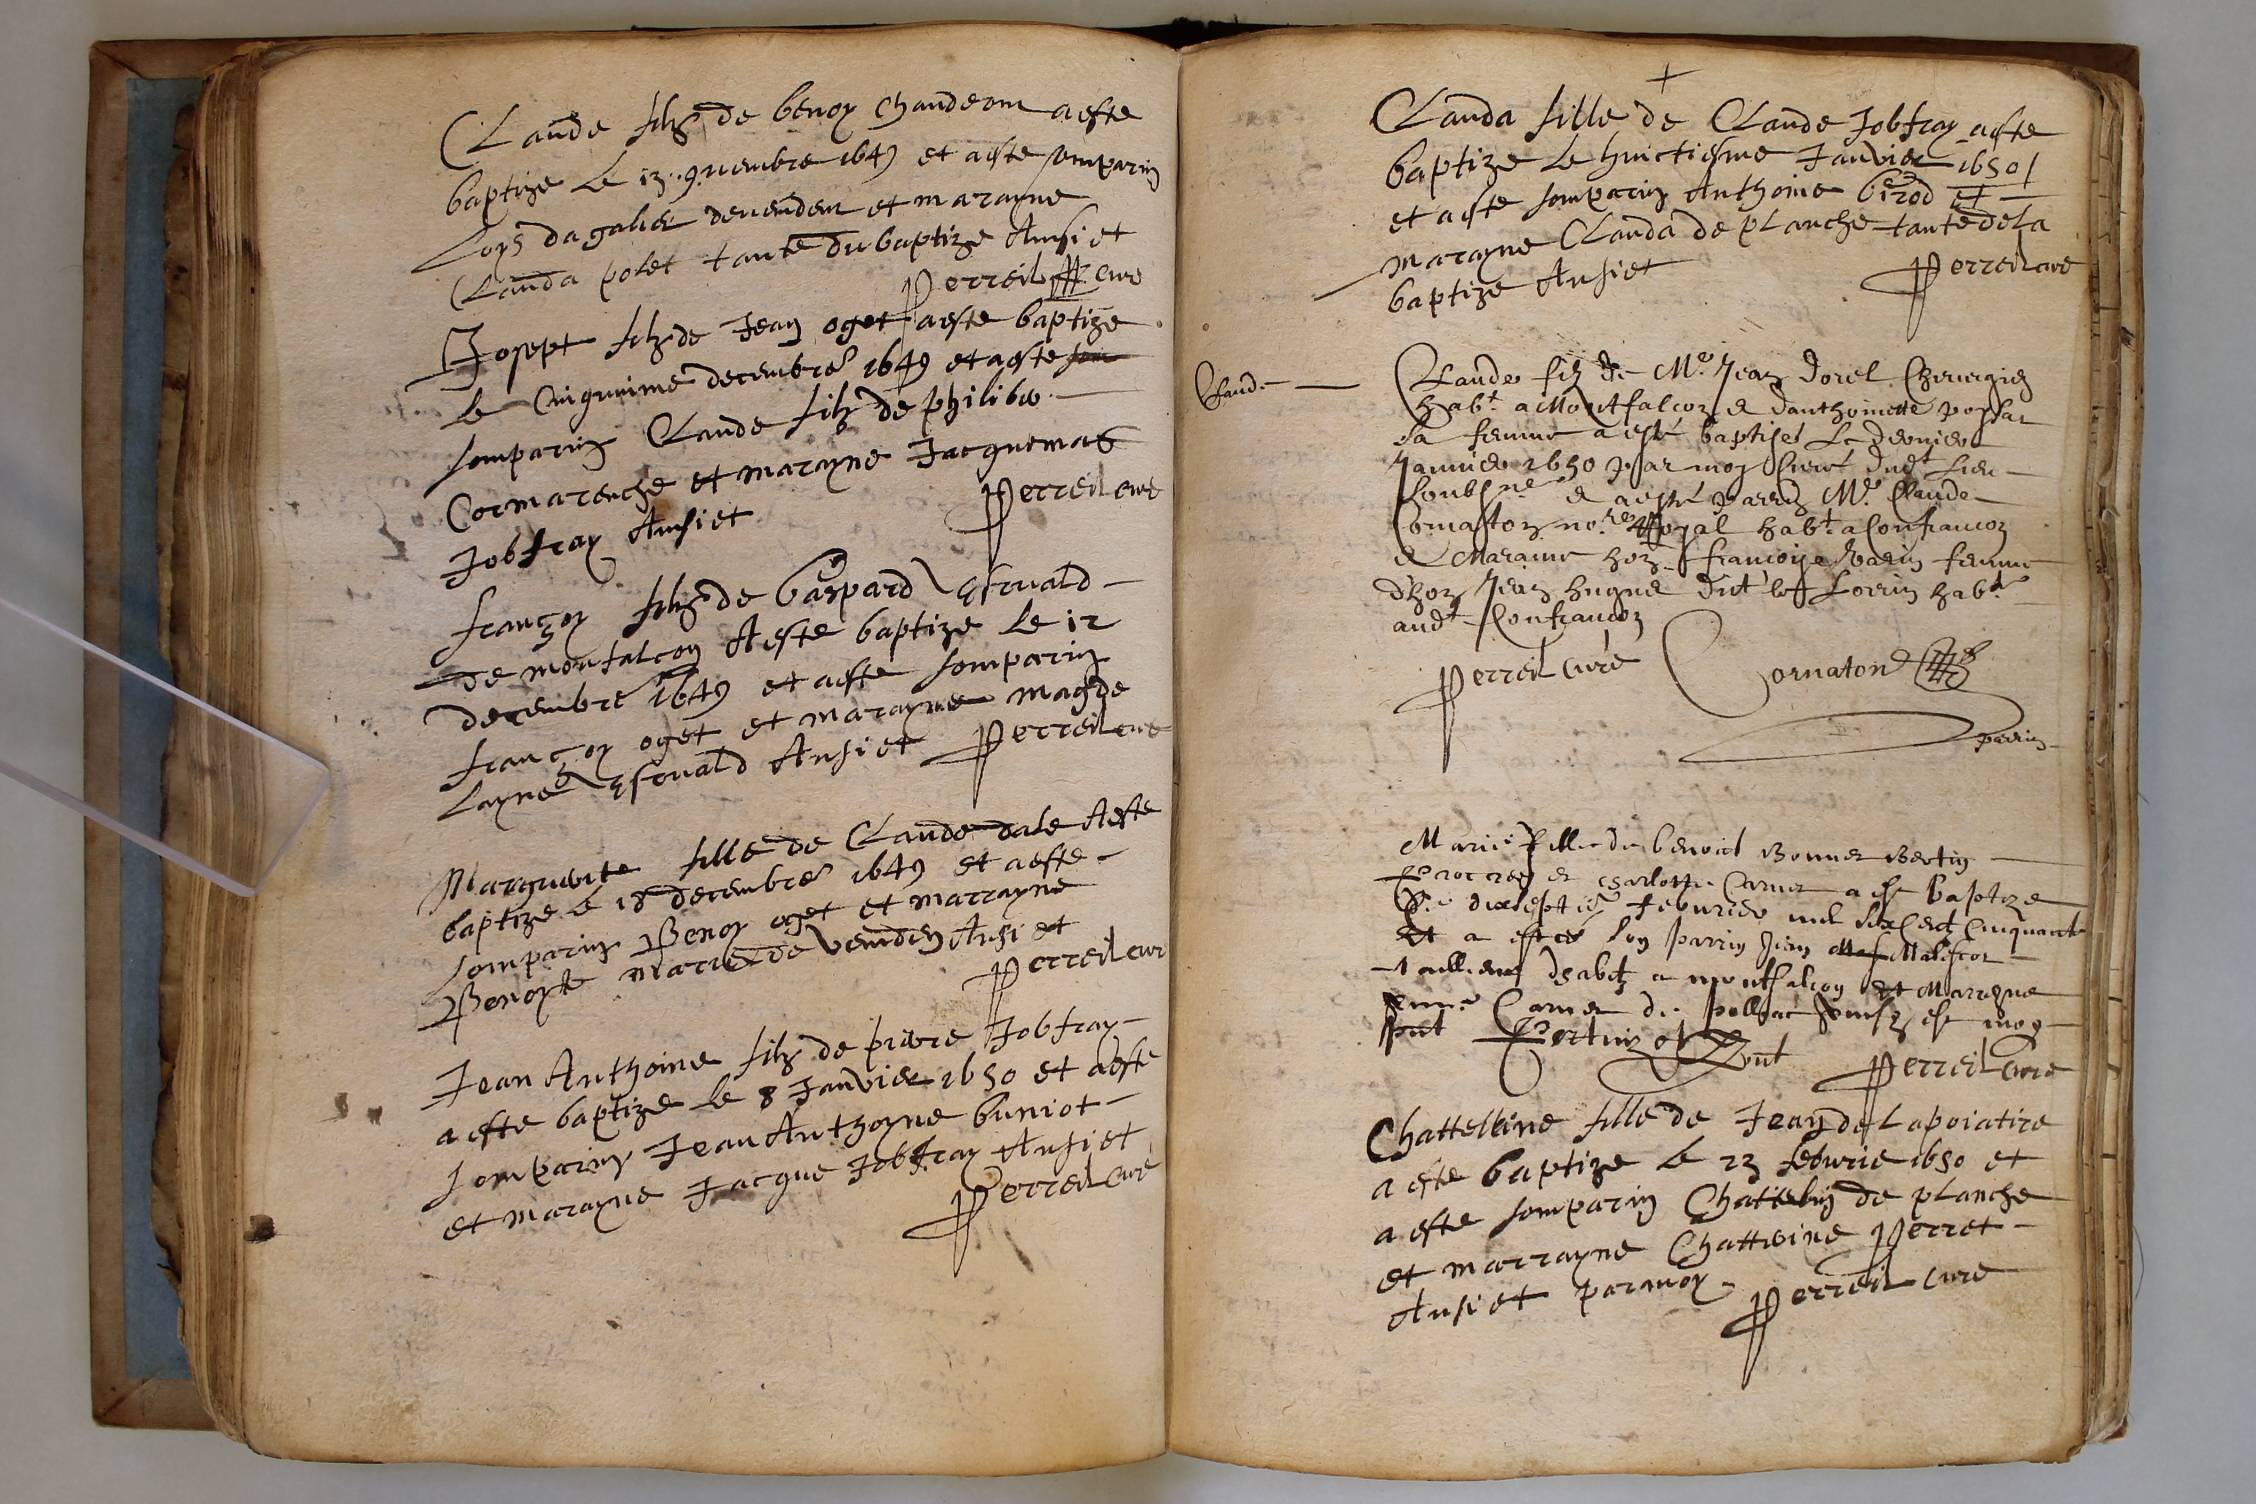 Claude filz de benoy Chandeom a este
baptize le 13 9vembre 1649 et a este somparin
Loys dagalier devendem et marayne
Clauda polet tante du baptize Ansi et
Perreil cure
Josept filz de Jean oget a este baptize
le Cinquime decembre 1649 et a este
somparin Claude filz de philibe
Cormarenche et marayne Jacquemas
Jobfray Ansi et
Perreil cure
françoy filz de Gaspard Esrvald
de monfalcon A este baptize le 12
decembre 1649 et a este somparin
françoy oget et marayne magde
layne Esrvald Ansi et Perreil cure
Marguerite fille de Claude dale A este
baptize le 18 decembre 1649 et a este
somparin Benoy oget et marrayne
Benoyte marie de vemden Ansi et
Perreil cure
Jean Anthoine filz de pierre Jobfray
a este baptize le 8 Janvier 1650 et a este
somparin Jean Anthoyne buniot
et marayne Jacque Jobfray Ansi et
Perreil Cure
Clauda fille de Claude Jobfray a este
baptize le huictiesme Janvier 1650
et a este somparin Anthoine birod et
marayne Clauda de planche tante de la
baptize Ansi et
Perreil cure
Claude
Claude filz de Me Jean Dorel Chirurgien
habt a Montfalcon & danthoinette
sa femme a esté baptisé le dernier
Janvier 1650 par moy Curé dudt lieu
soubsne & a esté parrin Me Claude
Cornaton nore Royal habt a Confrancon
& Maraine francoise varin femme
d'hon Jean hugue dict le Lorrin habt
audt Confrancon
Perreil curé Cornaton
parrin
Marie fille de benoict
et Charlotte Carner a est baptize
Le dixseptie febvrier mil six Cent Cinquante
Et a este son parrin
habt a montfalcon Et Marrayne
Carner de
Perreil Cure
Chattelline fille de Jean de Lapoiatire
a este baptize le 23 febvrie 1650 et
a este somparin Chattelin de planche
et marrayne Chatteine Perret
Ansi et parmoy
Perreil cure